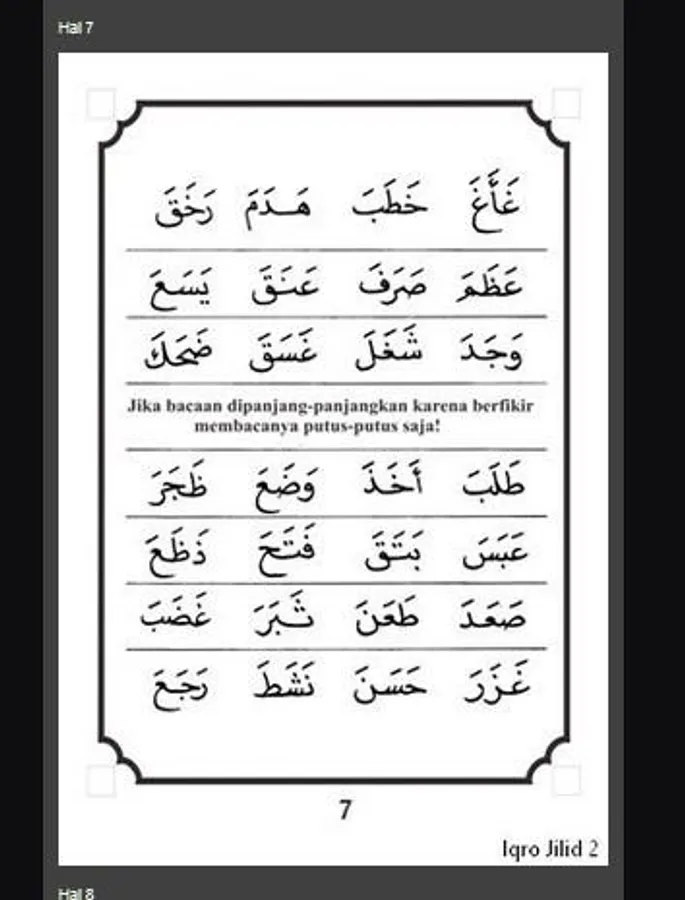 Hal 7
غَأَغَ خَطَبَ هَدَمَ رَخَقَ
عَظَمَ صَرَفَ عَنَقَ يَسَعَ
وَجَدَ شَغَلَ غَسَقَ ضَحَكَ
Jika bacaan dipanjang-panjangkan karena berfikir
membacanya putus-putus saja!
طَلَبَ أَخَذَ وَضَعَ ظَجَرَ
عَبَسَ بَتَقَ فَتَحَ ذَظَعَ
صَعَدَ طَعَنَ ثَبَرَ غَضَبَ
غَزَرَ حَسَنَ نَشَطَ رَجَعَ
7
Iqro Jilid 2
Hal 8